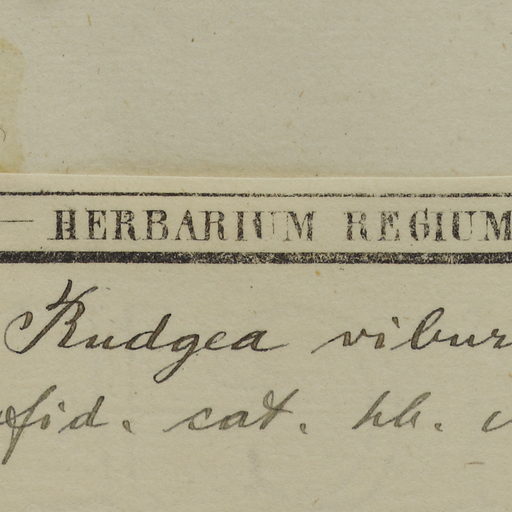 — HERBARIUM REGIUM
Rudgea vibur
fid. cat. hb.